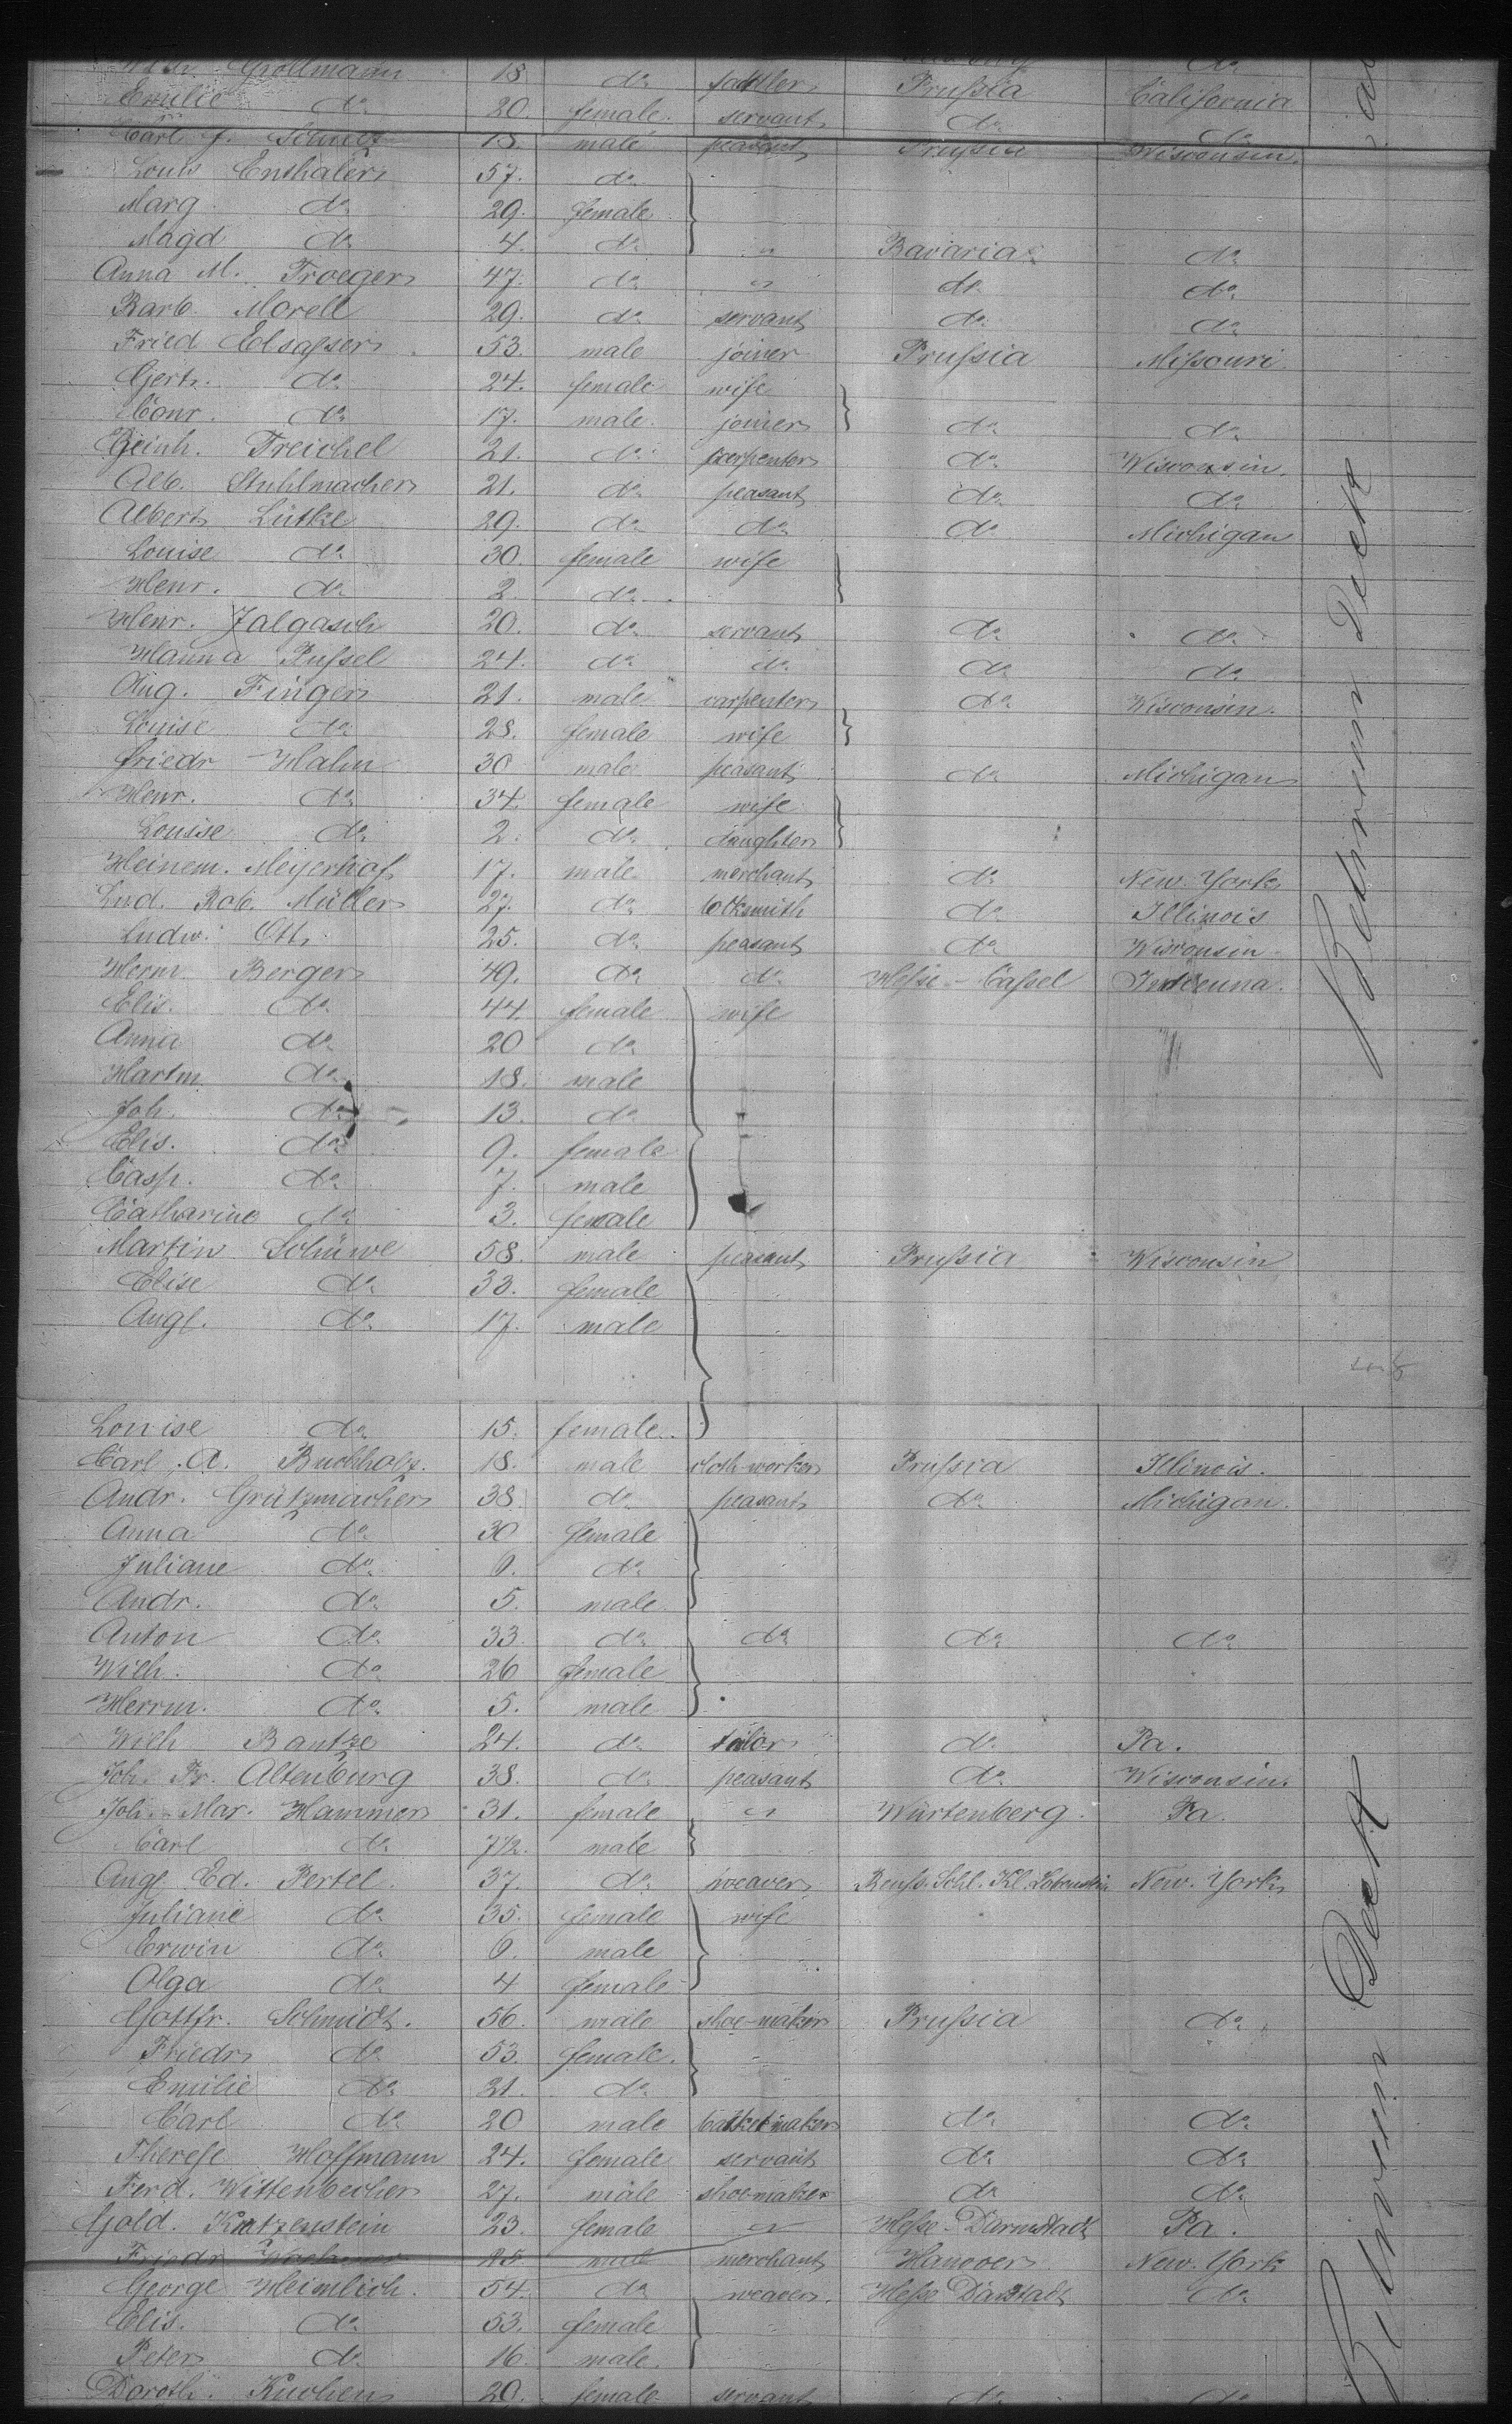 Grollmann 18 do sattler Prußia California
Emilie do 20. female. servant do do
Carl J. 18. male peasant Prußia Wisconsin.
Louis Enthaler 57. do
Marg. do 29. female
Magd do 4. do " Bavaria do
Anna M. Troeger 47. do " do do
Barb. Morell 29. do servant do do
Fried Elsaßer 53. male joiner Prußia Mißouri
Gert. do 24. female wife
Conr. do 17. male joiner do do
Heinh. Treichel 21. do carpenter do Wisconsin.
Alb. Stuhlmacher 21. do peasant do do
Albert Lütke 29. do do do Michigan
Louise do 30. female wife
Henr. do 2 do
Henr. Jalgasch 20. do servant do do
Hanna Pußel 24. do do do do
Aug. Finger 21. male carpenter do Wisconsin.
Louise do 28. female wife
Friedr Hahn 30 male peasant do Michigan
Henr. do 34. female wife
Louise do 2. do daughter
Heinem. Meyerhof 17. male merchant do New York
Lud. Rob. Müller 27. do locksmith do Illinois
Ludw. Ott 25. do peasant do Wisconsin
Herm. Berger 49. do do Heße-Caßel Indienna.
Elis. do 44. female wife
Anna do 20 do
Hartm. do 18. male
Joh. do 13. do
Elis. do 9. female
Casp. do 7. male
Catharine do 3. female
Martin Schüwe 58. male peasant Prußia Wisconsin
Elise do 33. female
Augt. do 17. male
Between Deck
Louise do 15. female
Carl A. Buchholz. 18. male cloth-worker Prußia Illinois.
Andr. Grützmacher 38. do peasant do Michigan.
Anna do 30 female
Juliane do 9. do
Andr. do 5. male
Anton do 33 do do do do
Wilh. do 26 female
Herrm. do 5. male
Wilh Bantze 24. do tailor do Pa.
Joh. Fr. Altenburg 38. do peasant do Wisconsin.
Joh. Mar. Hammer 31. female " Würtenberg. Pa.
Carl do 7/12. male
Augt Ed. Pertel. 37. do weaver Reuß. Schl. Kl. Lobenstein New York
Juliane do 35. female wife
Erwin do 9. male
Olga do 4 female
Gottfr. Schmidt. 56. male shoe-maker Prußia do
Friedr do 53. female.
Emilie do 21. do
Carl do 20 male basketmaker do do
Therese Hoffmann 24. female servant do do
Ferd. Wittenbecher 27. male shoe-maker do do
Gold. Katzenstein 23. female " Heße-Darmstadt Pa.
Friedr 25 male merchant Hanover New York
George Heimlich. 54. do weaver. Heße Darstadt do
Elis. do 53. female
Peter do 16 male.
Doroth. Kuchen 20. female servant do do
Between Deck